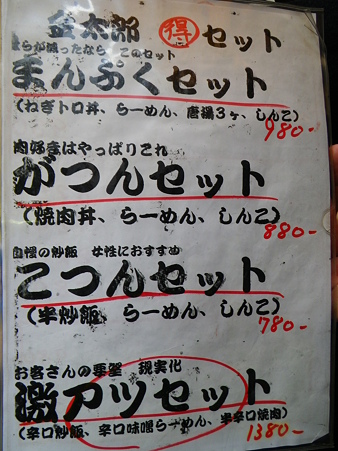 金太郎 得 セット
はらが減ったなら このセット
まんぷくセット
(ねぎトロ丼、らーめん、唐揚3ヶ、しんこ)
980-
肉好きはやっぱりこれ
がつんセット
(焼肉丼、らーめん、しんこ)
880-
自慢の炒飯 女性におすすめ
こつんセット
(半炒飯 らーめん、しんこ)
780-
お客さんの要望 現実化
激アツセット
(辛口炒飯、辛口味噌らーめん、半辛口焼肉)
1380-